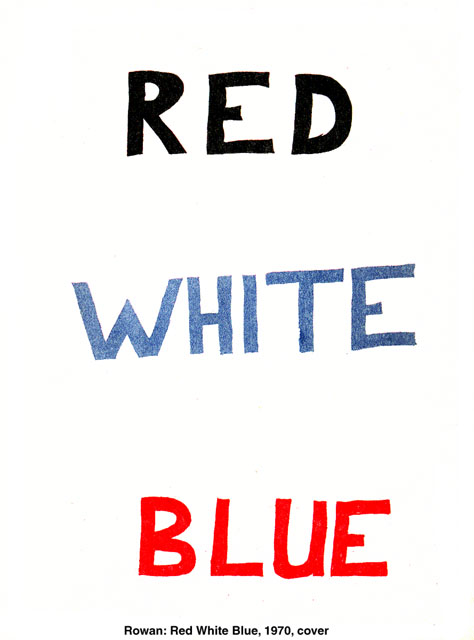 RED
WHITE
BLUE
Rowan: Red White Blue, 1970, cover